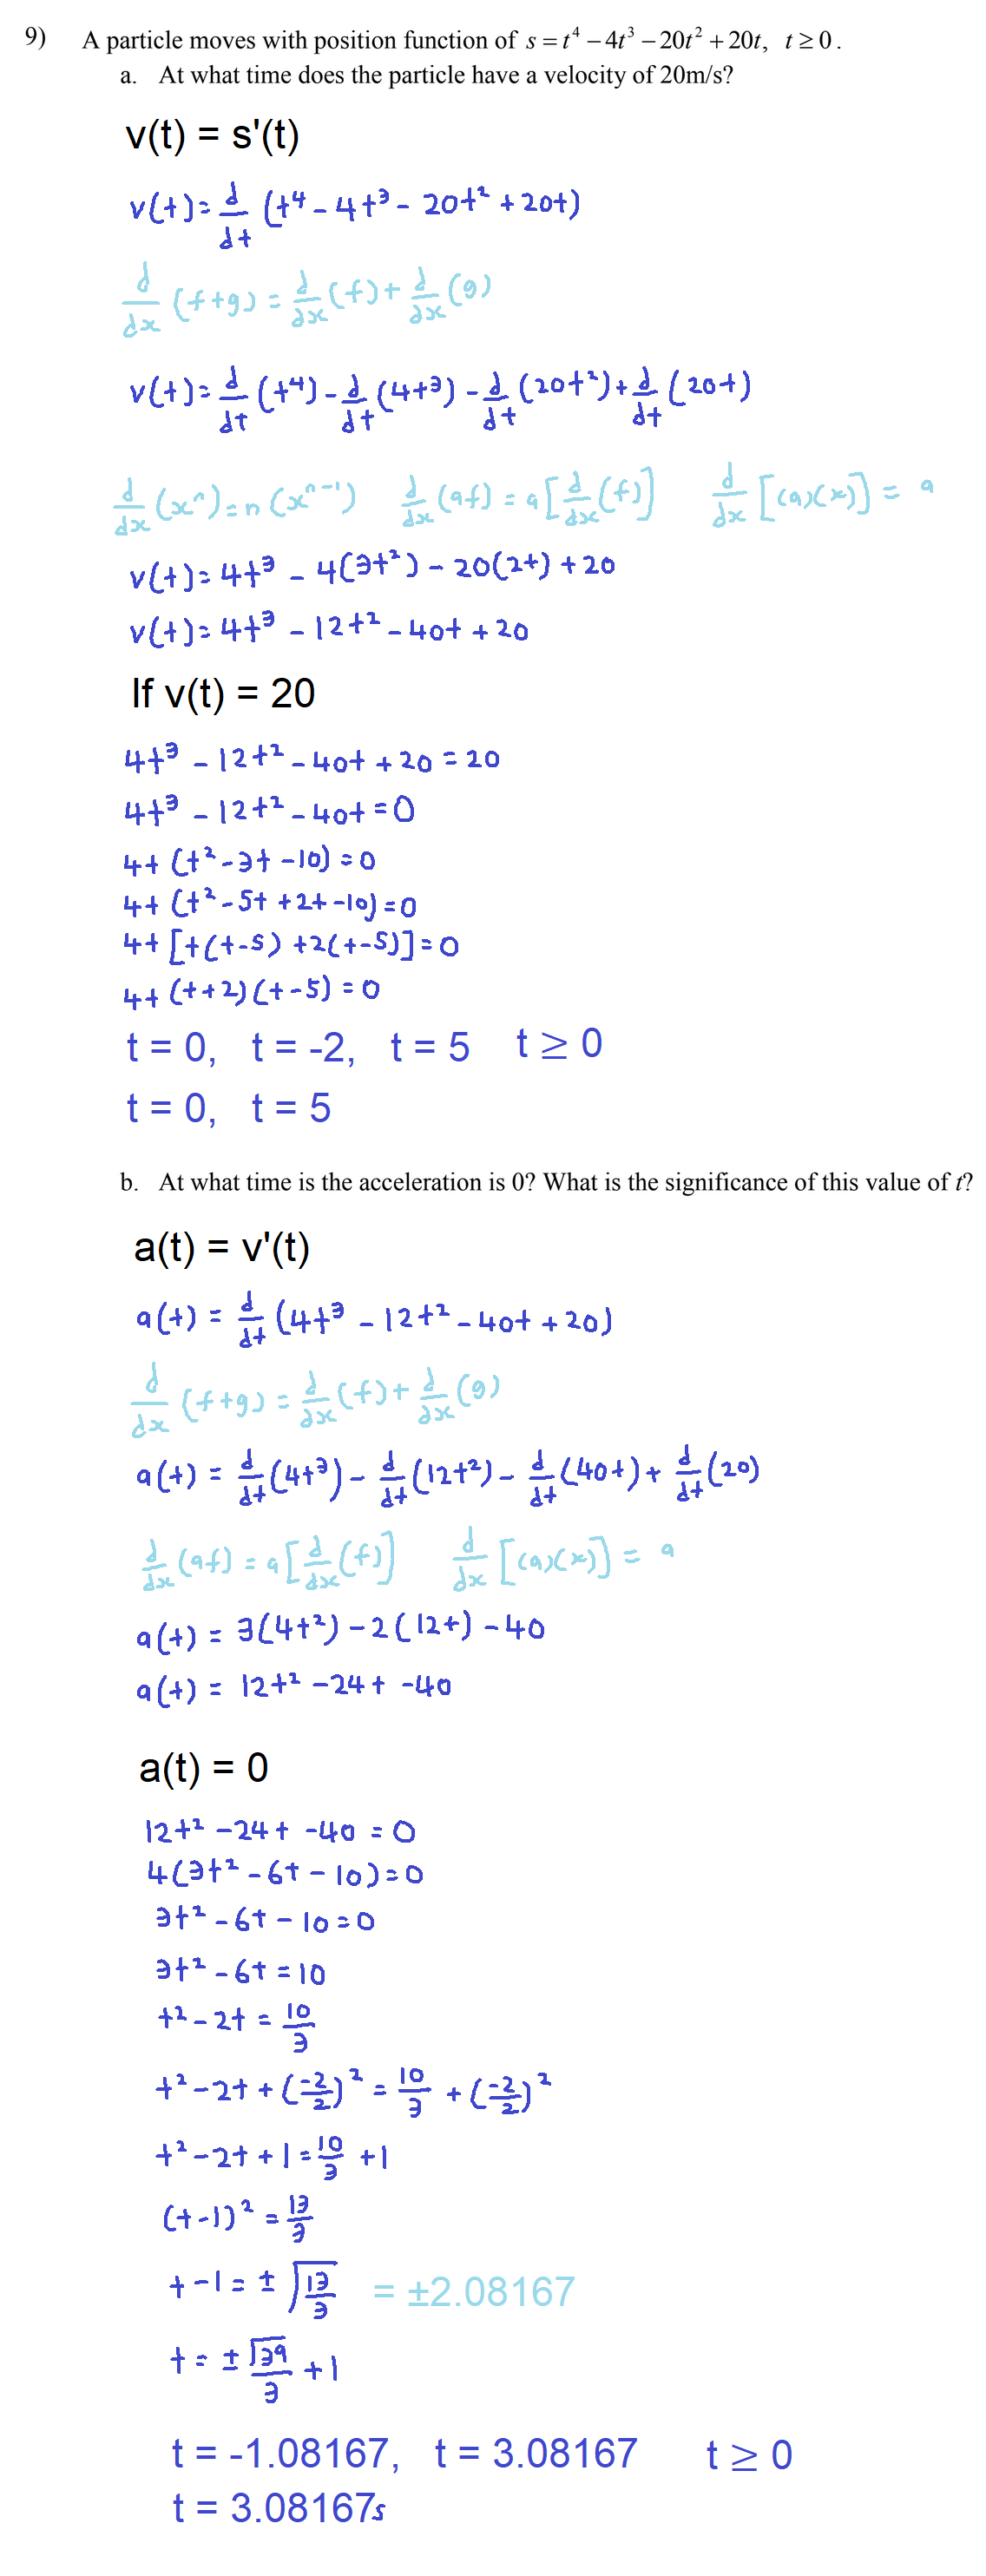 9) A particle moves with position function of s = t⁴ − 4t³ − 20t² + 20t, t ≥ 0.
a. At what time does the particle have a velocity of 20m/s?
v(t) = s'(t)
v(t) = d/dt (t⁴ - 4t³ - 20t² + 20t)
d/dx (f+g) = d/dx (f) + d/dx (g)
v(t) = d/dt (t⁴) - d/dt (4t³) - d/dt (20t²) + d/dt (20t)
d/dx (xⁿ) = n(xⁿ⁻¹) d/dx (af) = a[d/dx (f)] d/dx [(a)(x)] = a
v(t) = 4t³ - 4(3t²) - 20(2t) + 20
v(t) = 4t³ - 12t² - 40t + 20
If v(t) = 20
4t³ - 12t² - 40t + 20 = 20
4t³ - 12t² - 40t = 0
4t (t² - 3t - 10) = 0
4t (t² - 5t + 2t - 10) = 0
4t [t(t-5) + 2(t-5)] = 0
4t (t+2)(t-5) = 0
t = 0, t = -2, t = 5 t ≥ 0
t = 0, t = 5
b. At what time is the acceleration is 0? What is the significance of this value of t?
a(t) = v'(t)
a(t) = d/dt (4t³ - 12t² - 40t + 20)
d/dx (f+g) = d/dx (f) + d/dx (g)
a(t) = d/dt (4t³) - d/dt (12t²) - d/dt (40t) + d/dt (20)
d/dx (af) = a[d/dx (f)] d/dx [(a)(x)] = a
a(t) = 3(4t²) - 2(12t) - 40
a(t) = 12t² - 24t - 40
a(t) = 0
12t² - 24t - 40 = 0
4(3t² - 6t - 10) = 0
3t² - 6t - 10 = 0
3t² - 6t = 10
t² - 2t = 10/3
t² - 2t + (-2/2)² = 10/3 + (-2/2)²
t² - 2t + 1 = 10/3 + 1
(t-1)² = 13/3
t - 1 = ± √(13/3) = ±2.08167
t = ± √39/3 + 1
t = -1.08167, t = 3.08167 t ≥ 0
t = 3.08167s